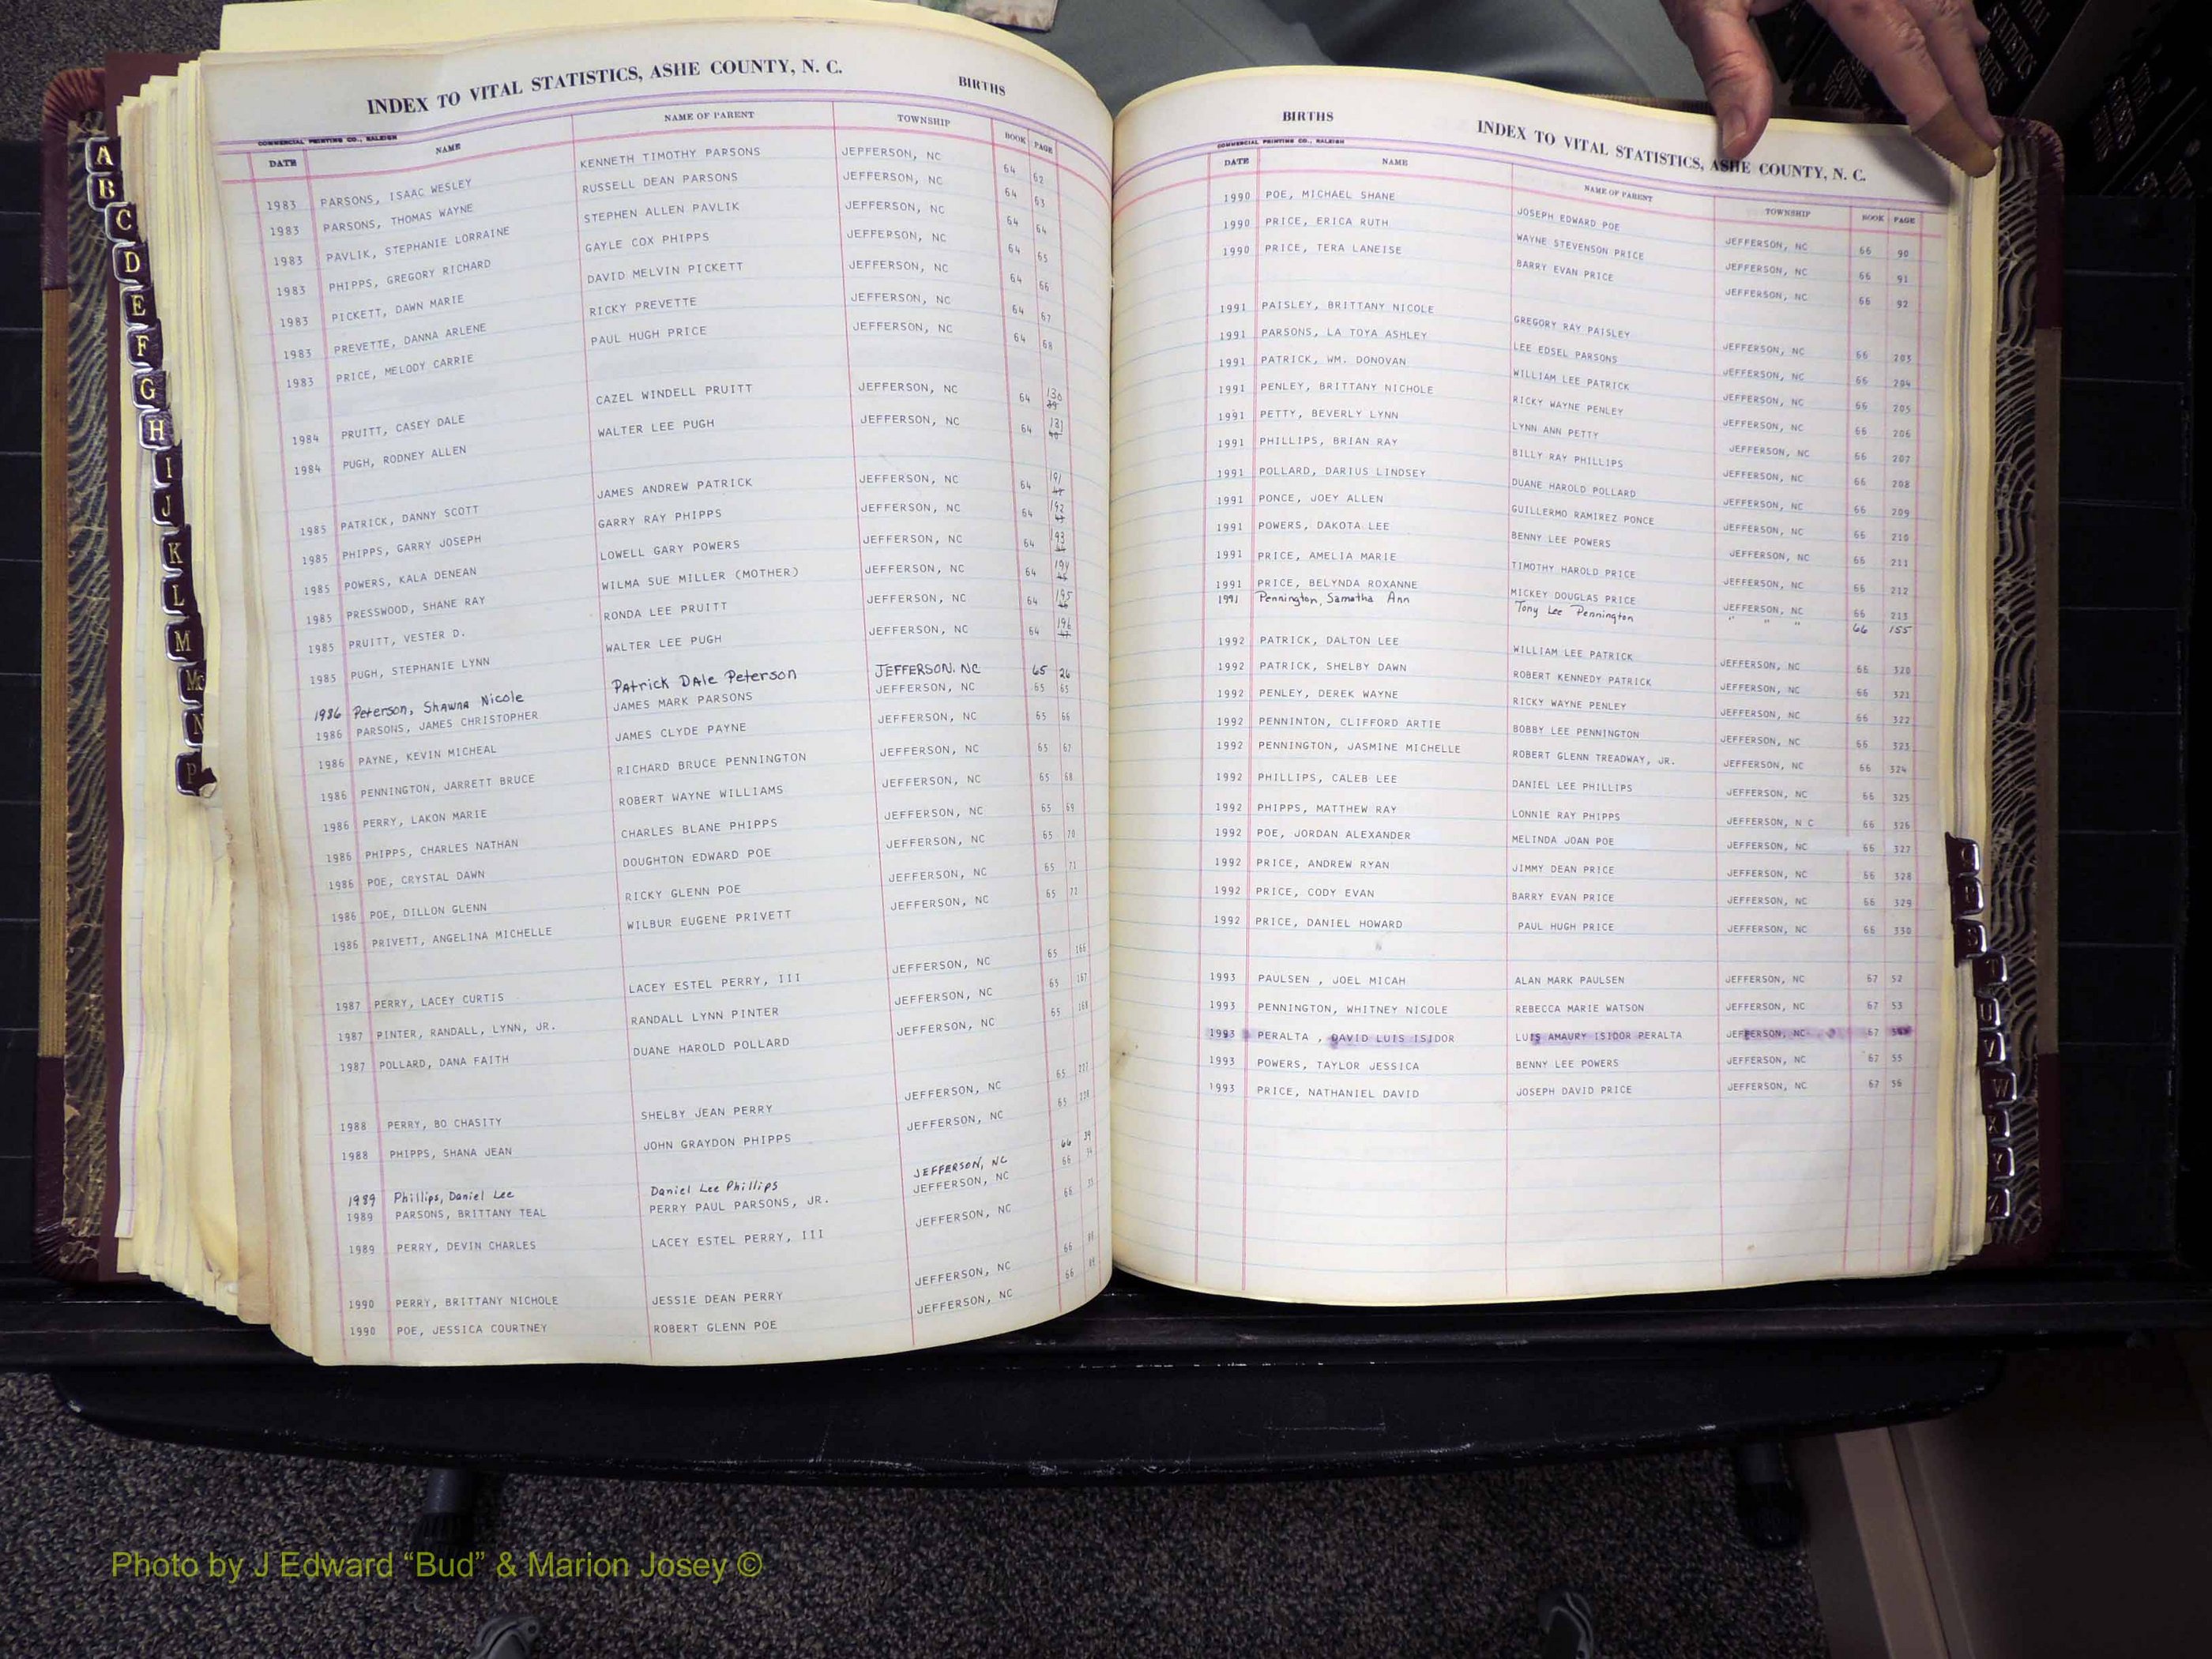 INDEX TO VITAL STATISTICS, ASHE COUNTY, N. C. BIRTHS
COMMERCIAL PRINTING CO., RALEIGH
DATE NAME NAME OF PARENT TOWNSHIP BOOK PAGE
1983 PARSONS, ISAAC WESLEY KENNETH TIMOTHY PARSONS JEFFERSON, NC 64 62
1983 PARSONS, THOMAS WAYNE RUSSELL DEAN PARSONS JEFFERSON, NC 64 63
1983 PAVLIK, STEPHANIE LORRAINE STEPHEN ALLEN PAVLIK JEFFERSON, NC 64 64
1983 PHIPPS, GREGORY RICHARD GAYLE COX PHIPPS JEFFERSON, NC 64 65
1983 PICKETT, DAWN MARIE DAVID MELVIN PICKETT JEFFERSON, NC 64 66
1983 PREVETTE, DANNA ARLENE RICKY PREVETTE JEFFERSON, NC 64 67
1983 PRICE, MELODY CARRIE PAUL HUGH PRICE JEFFERSON, NC 64 68
1984 PRUITT, CASEY DALE CAZEL WINDELL PRUITT JEFFERSON, NC 64 130
1984 PUGH, RODNEY ALLEN WALTER LEE PUGH JEFFERSON, NC 64 131
1985 PATRICK, DANNY SCOTT JAMES ANDREW PATRICK JEFFERSON, NC 64 191
1985 PHIPPS, GARRY JOSEPH GARRY RAY PHIPPS JEFFERSON, NC 64 192
1985 POWERS, KALA DENEAN LOWELL GARY POWERS JEFFERSON, NC 64 193
1985 PRESSWOOD, SHANE RAY WILMA SUE MILLER (MOTHER) JEFFERSON, NC 64 194
1985 PRUITT, VESTER D. RONDA LEE PRUITT JEFFERSON, NC 64 195
1985 PUGH, STEPHANIE LYNN WALTER LEE PUGH JEFFERSON, NC 64 196
1986 Peterson, Shawna Nicole Patrick DAle Peterson JEFFERSON. NC 65 26
1986 PARSONS, JAMES CHRISTOPHER JAMES MARK PARSONS JEFFERSON, NC 65 65
1986 PAYNE, KEVIN MICHEAL JAMES CLYDE PAYNE JEFFERSON, NC 65 66
1986 PENNINGTON, JARRETT BRUCE RICHARD BRUCE PENNINGTON JEFFERSON, NC 65 67
1986 PERRY, LAKON MARIE ROBERT WAYNE WILLIAMS JEFFERSON, NC 65 68
1986 PHIPPS, CHARLES NATHAN CHARLES BLANE PHIPPS JEFFERSON, NC 65 69
1986 POE, CRYSTAL DAWN DOUGHTON EDWARD POE JEFFERSON, NC 65 70
1986 POE, DILLON GLENN RICKY GLENN POE JEFFERSON, NC 65 71
1986 PRIVETT, ANGELINA MICHELLE WILBUR EUGENE PRIVETT JEFFERSON, NC 65 72
1987 PERRY, LACEY CURTIS LACEY ESTEL PERRY, III JEFFERSON, NC 65 166
1987 PINTER, RANDALL, LYNN, JR. RANDALL LYNN PINTER JEFFERSON, NC 65 167
1987 POLLARD, DANA FAITH DUANE HAROLD POLLARD JEFFERSON, NC 65 168
1988 PERRY, BO CHASITY SHELBY JEAN PERRY JEFFERSON, NC 65
1988 PHIPPS, SHANA JEAN JOHN GRAYDON PHIPPS JEFFERSON, NC 65
1989 Phillips, Daniel Lee Daniel Lee Phillips JEFFERSON, NC 66 39
1989 PARSONS, BRITTANY TEAL PERRY PAUL PARSONS, JR. JEFFERSON, NC 66
1989 PERRY, DEVIN CHARLES LACEY ESTEL PERRY, III JEFFERSON, NC 66
1990 PERRY, BRITTANY NICHOLE JESSIE DEAN PERRY JEFFERSON, NC 66 88
1990 POE, JESSICA COURTNEY ROBERT GLENN POE JEFFERSON, NC 66 89
BIRTHS INDEX TO VITAL STATISTICS, ASHE COUNTY, N. C.
COMMERCIAL PRINTING CO., RALEIGH
DATE NAME NAME OF PARENT TOWNSHIP BOOK PAGE
1990 POE, MICHAEL SHANE JOSEPH EDWARD POE JEFFERSON, NC 66 90
1990 PRICE, ERICA RUTH WAYNE STEVENSON PRICE JEFFERSON, NC 66 91
1990 PRICE, TERA LANEISE BARRY EVAN PRICE JEFFERSON, NC 66 92
1991 PAISLEY, BRITTANY NICOLE GREGORY RAY PAISLEY JEFFERSON, NC 66 203
1991 PARSONS, LA TOYA ASHLEY LEE EDSEL PARSONS JEFFERSON, NC 66 204
1991 PATRICK, WM. DONOVAN WILLIAM LEE PATRICK JEFFERSON, NC 66 205
1991 PENLEY, BRITTANY NICHOLE RICKY WAYNE PENLEY JEFFERSON, NC 66 206
1991 PETTY, BEVERLY LYNN LYNN ANN PETTY JEFFERSON, NC 66 207
1991 PHILLIPS, BRIAN RAY BILLY RAY PHILLIPS JEFFERSON, NC 66 208
1991 POLLARD, DARIUS LINDSEY DUANE HAROLD POLLARD JEFFERSON, NC 66 209
1991 PONCE, JOEY ALLEN GUILLERMO RAMIREZ PONCE JEFFERSON, NC 66 210
1991 POWERS, DAKOTA LEE BENNY LEE POWERS JEFFERSON, NC 66 211
1991 PRICE, AMELIA MARIE TIMOTHY HAROLD PRICE JEFFERSON, NC 66 212
1991 PRICE, BELYNDA ROXANNE MICKEY DOUGLAS PRICE JEFFERSON, NC 66 213
1991 Pennington, Samatha Ann Tony Lee Pennington " " " 66 155
1992 PATRICK, DALTON LEE WILLIAM LEE PATRICK JEFFERSON, NC 66 320
1992 PATRICK, SHELBY DAWN ROBERT KENNEDY PATRICK JEFFERSON, NC 66 321
1992 PENLEY, DEREK WAYNE RICKY WAYNE PENLEY JEFFERSON, NC 66 322
1992 PENNINTON, CLIFFORD ARTIE BOBBY LEE PENNINGTON JEFFERSON, NC 66 323
1992 PENNINGTON, JASMINE MICHELLE ROBERT GLENN TREADWAY, JR. JEFFERSON, NC 66 324
1992 PHILLIPS, CALEB LEE DANIEL LEE PHILLIPS JEFFERSON, NC 66 325
1992 PHIPPS, MATTHEW RAY LONNIE RAY PHIPPS JEFFERSON, N C 66 326
1992 POE, JORDAN ALEXANDER MELINDA JOAN POE JEFFERSON, NC 66 327
1992 PRICE, ANDREW RYAN JIMMY DEAN PRICE JEFFERSON, NC 66 328
1992 PRICE, CODY EVAN BARRY EVAN PRICE JEFFERSON, NC 66 329
1992 PRICE, DANIEL HOWARD PAUL HUGH PRICE JEFFERSON, NC 66 330
1993 PAULSEN , JOEL MICAH ALAN MARK PAULSEN JEFFERSON, NC 67 52
1993 PENNINGTON, WHITNEY NICOLE REBECCA MARIE WATSON JEFFERSON, NC 67 53
1993 PERALTA , DAVID LUIS ISIDOR LUIS AMAURY ISIDOR PERALTA JEFFERSON, NC 67
1993 POWERS, TAYLOR JESSICA BENNY LEE POWERS JEFFERSON, NC 67 55
1993 PRICE, NATHANIEL DAVID JOSEPH DAVID PRICE JEFFERSON, NC 67 56
A
B
C
D
E
F
G
H
I
J
K
L
M
Mc
N
P
T
U
V
W
X
Y
Z
VITAL STATISTICS
Photo by J Edward “Bud” & Marion Josey ©